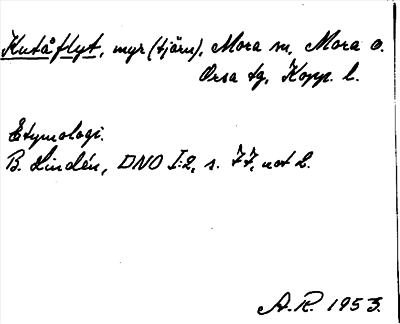 Kutåflyt, myr (tjärn), Mora sn, Mora o.
Orsa tg, Kopp. l.
Etymologi.
B. Lindén, DNO I:2, s. 77, not 2.
A.R. 1953.